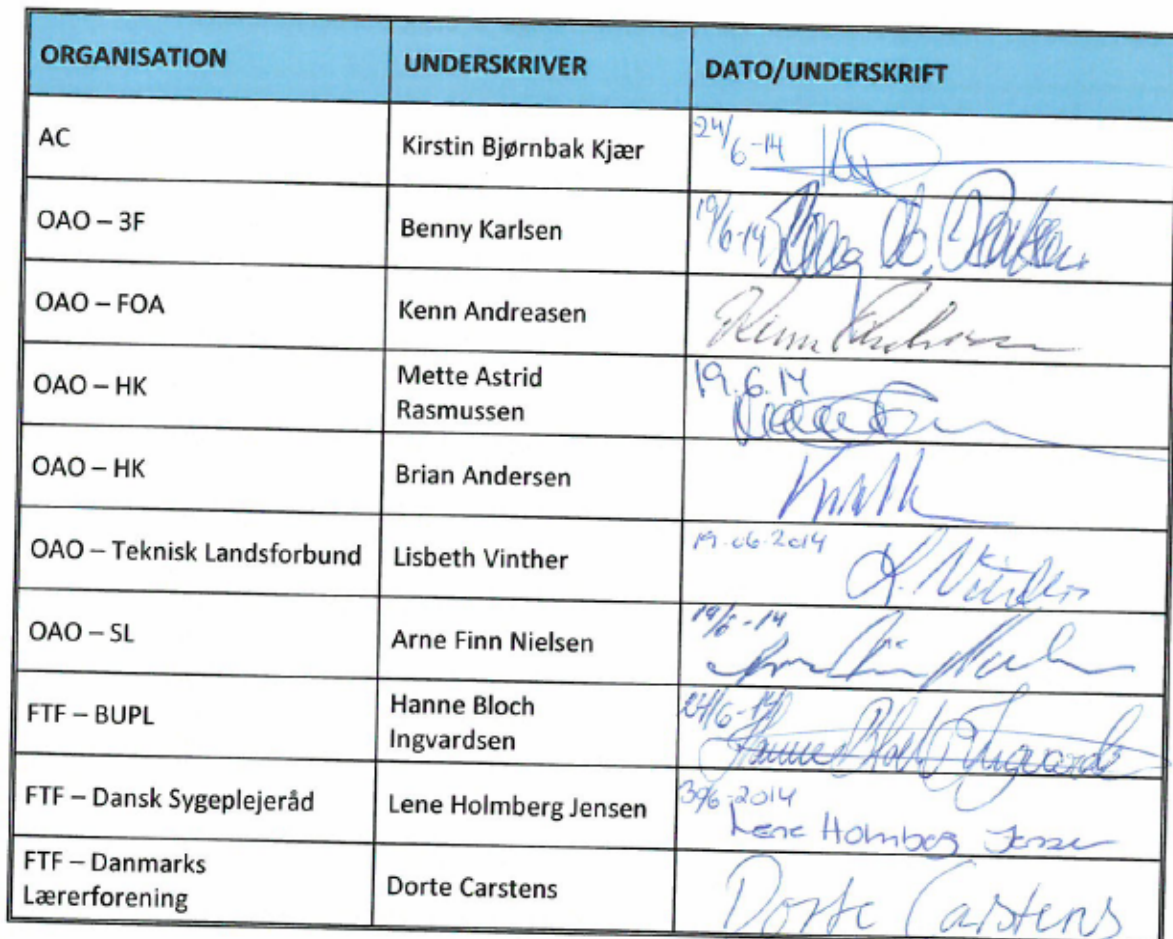 ORGANISATION UNDERSKRIVER DATO/UNDERSKRIFT
AC Kirstin Bjørnbak Kjær 24/6-14
OAO – 3F Benny Karlsen 19/6-14
OAO – FOA Kenn Andreasen
OAO – HK Mette Astrid
Rasmussen 19.6.14
OAO – HK Brian Andersen
OAO – Teknisk Landsforbund Lisbeth Vinther 19.06.2014
L. Vinther
OAO – SL Arne Finn Nielsen 19/6-14
FTF – BUPL Hanne Bloch
Ingvardsen 24/6-14
Hanne Bloch Ingvardsen
FTF – Dansk Sygeplejeråd Lene Holmberg Jensen 30/6-2014
Lene Holmberg Jensen
FTF – Danmarks
Lærerforening Dorte Carstens Dorte Carstens